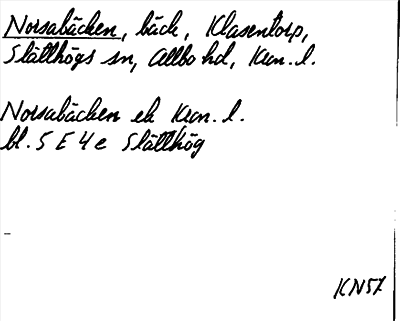 Norsabäcken, bäck, Klasentorp,
Slätthögs sn, Allbo hd, Kron. l.
Norsabäcken ek Kron. l.
bl. 5 E 4 e Slätthög
KN57